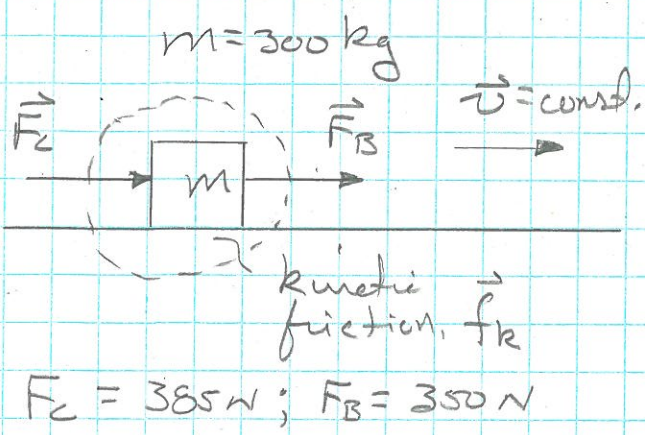 m = 300 kg
F⃗c F⃗B v⃗ = const.
m
kinetic
friction, f⃗k
Fc = 385 N ; FB = 350 N